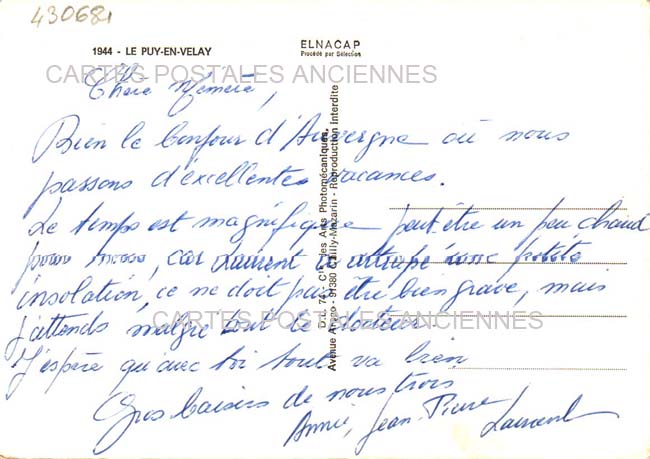 430681
1944 - LE PUY-EN-VELAY
ELNACAP
Procédé par Sélection
CARTES POSTALES ANCIENNES
Chère Mémère,
Bien le bonjour d'Auvergne où nous
passons d'excellentes vacances.
Le temps est magnifique peut être un peu chaud
pour nous, car Laurent a attrapé une petite
insolation, ce ne doit pas être bien grave, mais
j'attends malgré tout le docteur
CARTES POSTALES ANCIENNES
J'espère qu'avec toi tout va bien
Gros baisers de nous trois
Annie, Jean-Pierre
Laurent
D.L. 74 - Cie des Arts Photomécaniques,
Avenue Arago - 91380 Chilly-Mazarin - Reproduction interdite